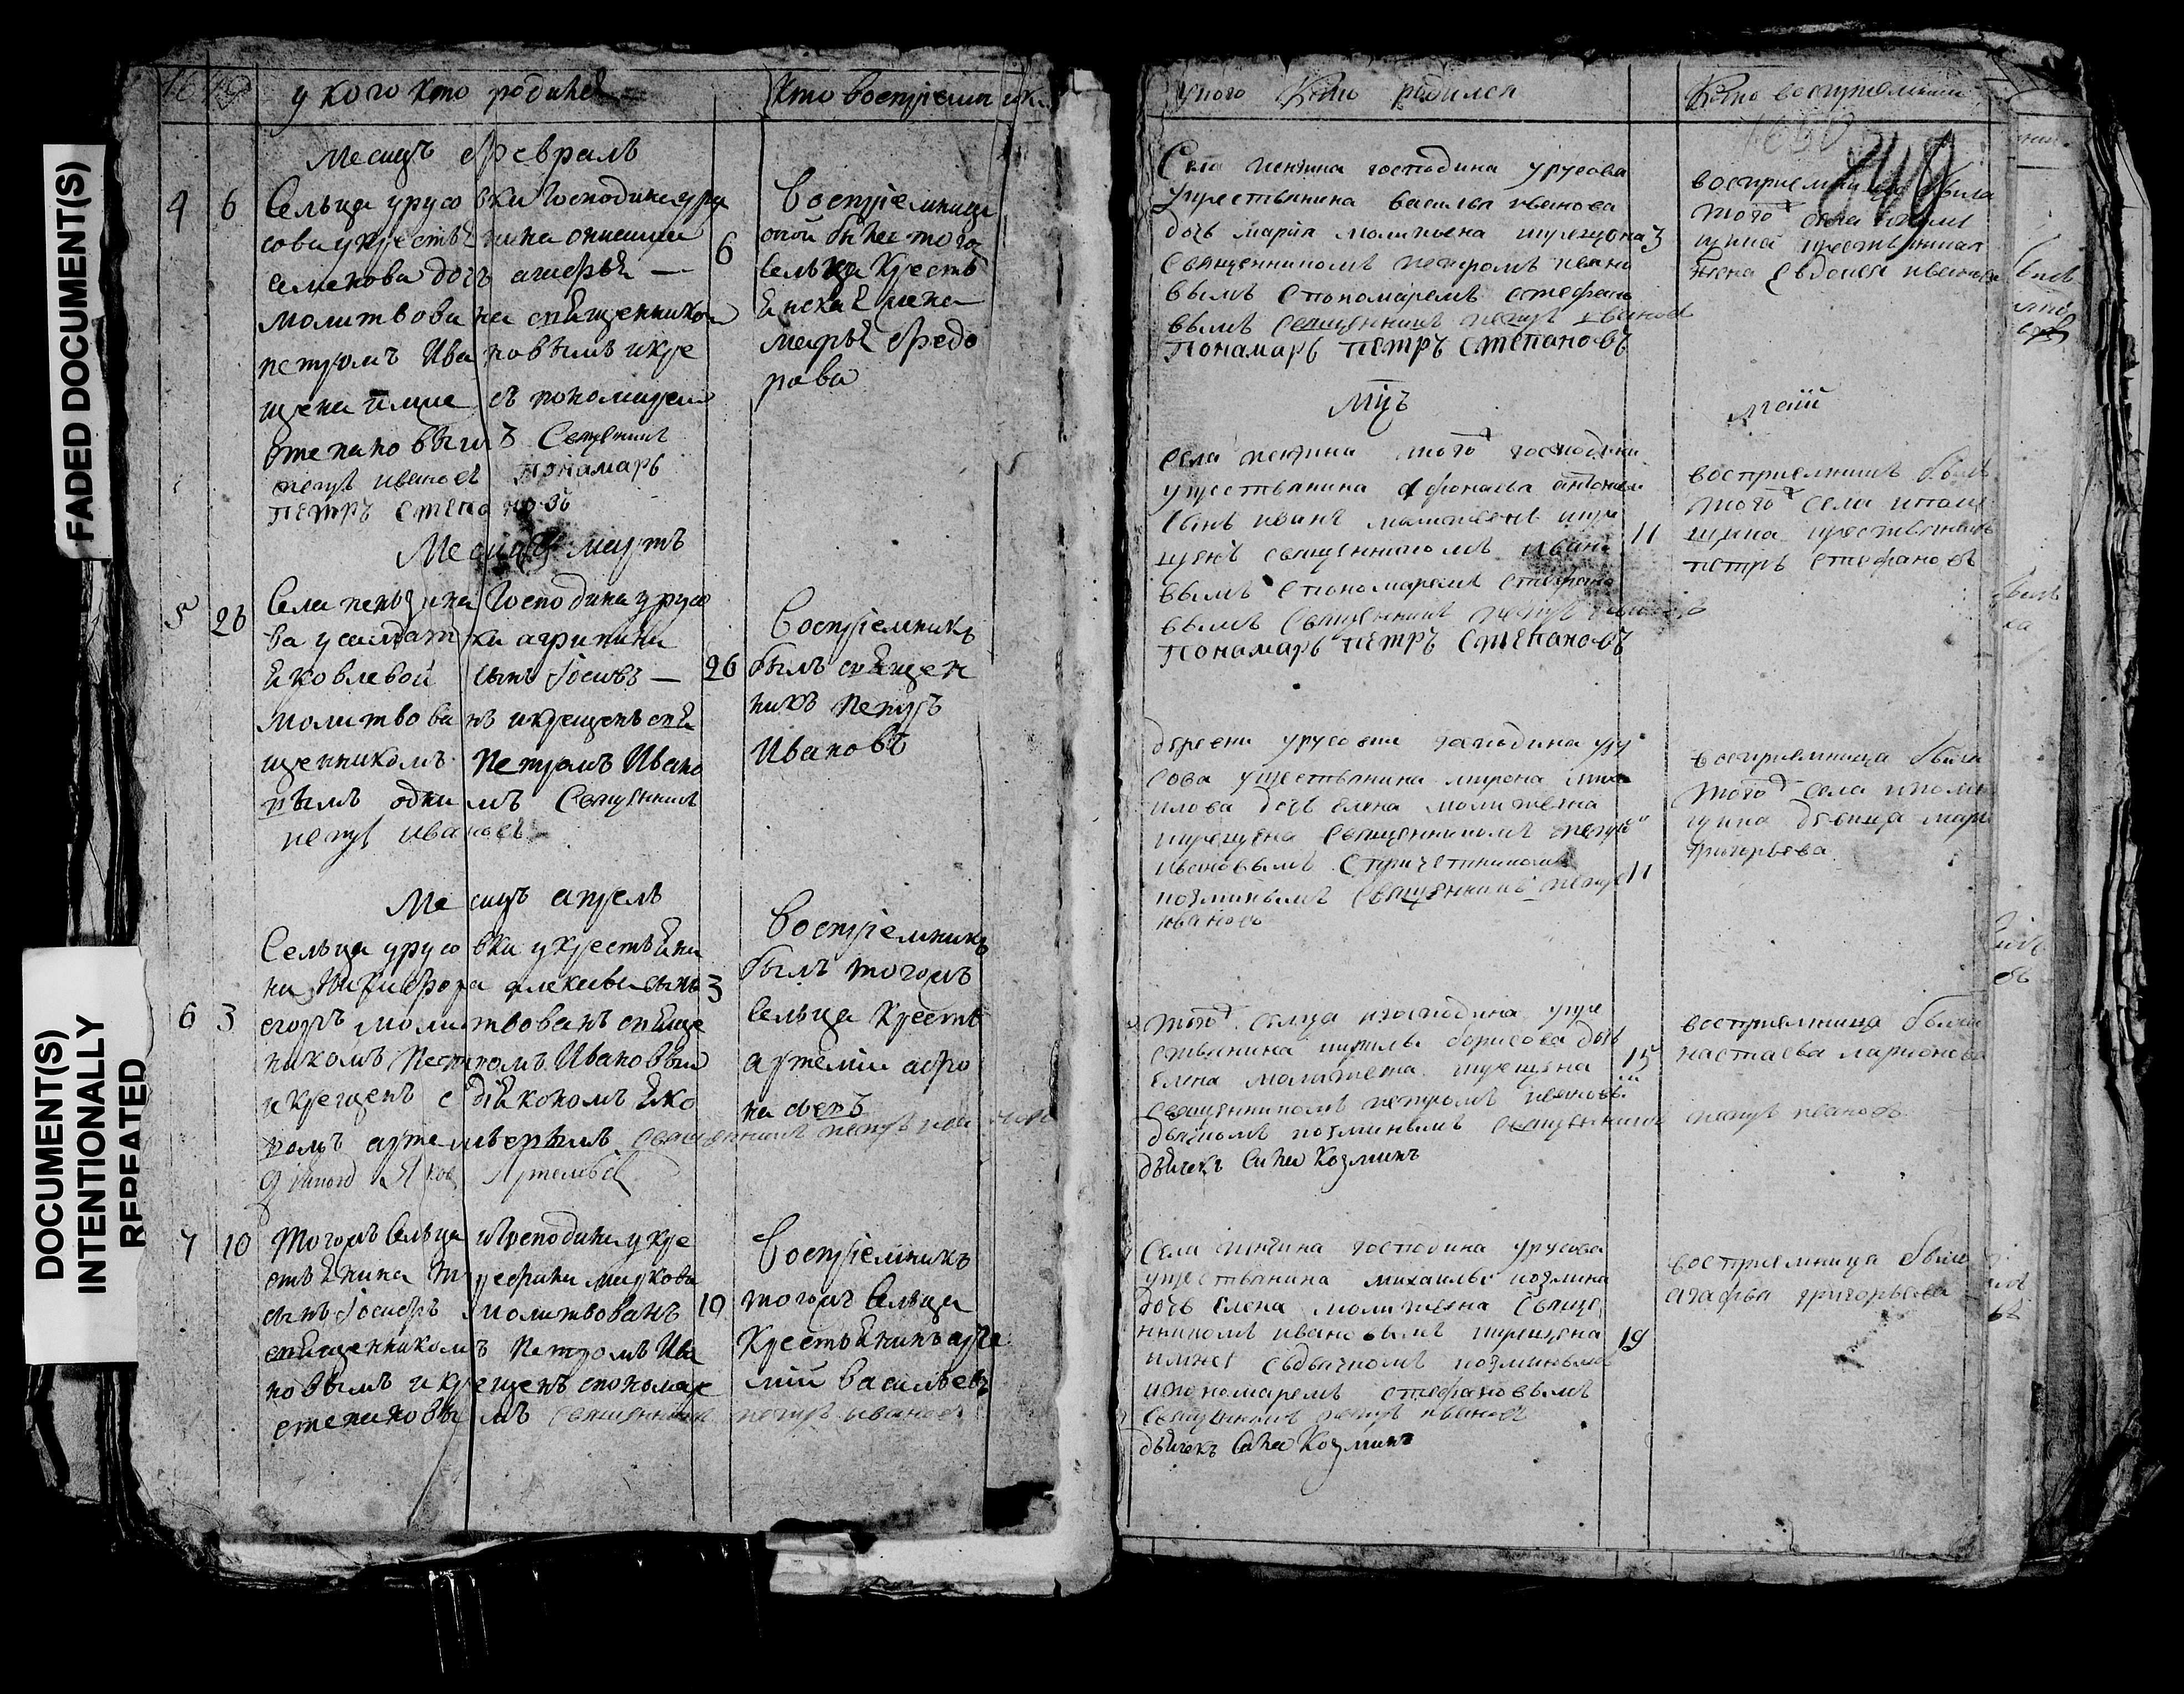 FADED DOCUMENT(S)
DOCUMENT(S)
INTENTIONALLY
REPEATED
у кого кто родилсѧ
Кто восприем
Месяцъ февраль
4 6 Сельца урусовки господина уру
сова у крестьѧнина онисима
семенова дочь агафьѧ —
молитвована свѧщенником
петромъ Ивановымъ и кре
щена имже съ пономарем
Степановымъ Священникъ
петръ ивановъ Понамарь
Петръ Степановъ
6
Восприемница
оной была того
сельца крестъ
ѧнскаѧ жена
марьѧ федо
рова
Месяцъ мартъ
5 26 Села пензина господина урусо
ва у салдатки агрипины
ѧковлевой сынъ Іосивъ —
молитвованъ и крещенъ свѧ
щенникомъ Петромъ Ивано
вымъ однимъ Священникъ
петръ ивановъ
26
Восприемникъ
былъ свѧщен
никъ Петръ
Ивановъ
Месяцъ апрель
6 3 Сельца урусовки у крестьѧни
на Никифора алексѣева сынъ
егоръ молитвованъ свѧще
никомъ Петромъ Ивановым
и крещенъ с діѧкономъ ѧко
вомъ артемьевымъ Священникъ петръ ивановъ
Діаконъ Яковъ Артемьевъ
3
Восприемникъ
былъ тогожъ
сельца крестъ
артемій афо
насьевъ
7 10 Тогожъ сельца и господина у кре
стьѧнина трефила маркова
сынъ Іосифъ молитвованъ
свѧщенникомъ Петромъ Ива
новымъ и крещенъ с пономаре
степановымъ Священникъ петръ ивановъ
10
Восприемникъ
тогожъ сельца
крестьѧнинъ арте
мій васильевъ
у кого Кто родился
Кто восприемник
1650
840
Села пензина господина урусова
у крестьянина василья иванова
дочь марія молитвена и крещена 3
священникомъ петромъ ивано
вымъ с пономаремъ стефано
вымъ Священникъ петръ ивановъ
Понамарь Петръ Степановъ
восприемница была
того села
крестьянская
жена Евдокея иванова
мцъ маій
Села пензина того господина
у крестьянина афонасья антонова
сынъ иванъ молитвенъ и кре
щенъ священникомъ ивано 11
вымъ с пономаремъ стефано
вымъ Священникъ петръ ивановъ
Понамарь Петръ Степановъ
восприемникъ былъ
того села
крестьянинъ
петръ стефановъ
деревни урусовки господина уру
сова у крестьянина мирона
дочь елена молитвена
и крещена священникомъ петро
ивановымъ с причетникомъ
козминымъ Священникъ петръ
ивановъ
11
восприемница была
того села
девица марья
григорьева
того сельца и господина у кре
стьянина кирилы борисова дочь
елена молитвена и крещена 15
священникомъ петромъ ивановы
дьячкомъ козминымъ Священникъ петръ ивановъ
дьячекъ Сила Козминъ
восприемница была
настасья ларионова
Села пензина господина урусова
у крестьянина михаилы козмина
дочь елена молитвена Свяще
нникомъ ивановымъ и крещена 19
имже съ дьячкомъ козминымъ
и пономаремъ стефановымъ
Священникъ петръ ивановъ
дьячекъ Сила Козминъ
восприемница была
агафья григорьева